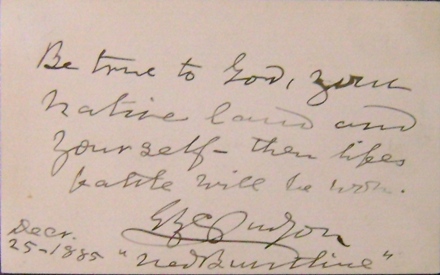 Be true to God, your
native land and
yourself - then lifes
battle will be won.
E Z C Judson
Decr.
25-1885 "Ned Buntline"